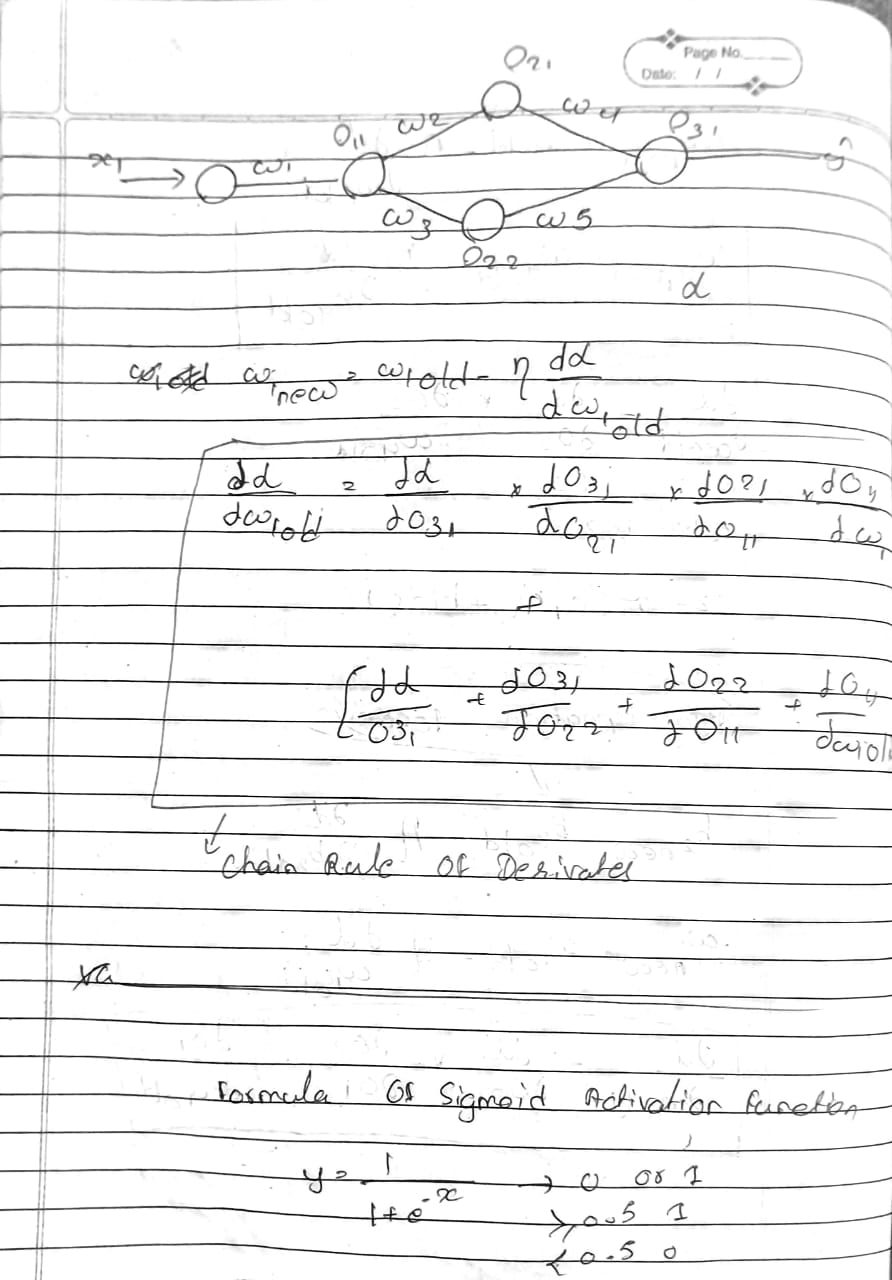 Page No.
Date: / /
O21
ω2 ω4
O11 O31
x1 ω1 ŷ
ω3 ω5
O22
α
ω1new = ω1old - η dα/dω1old
dα/dω1old = dα/dO31 * dO31/dO21 * dO21/dO11 * dO11/dω1
+
[dα/O31 + dO31/dO22 + dO22/dO11 + dO11/dω1ol
Chain Rule Of Derivates
Formula Of Sigmoid Activation Function
y = 1/1+e^-x → 0 or 1
≥ 0.5 1
< 0.5 0